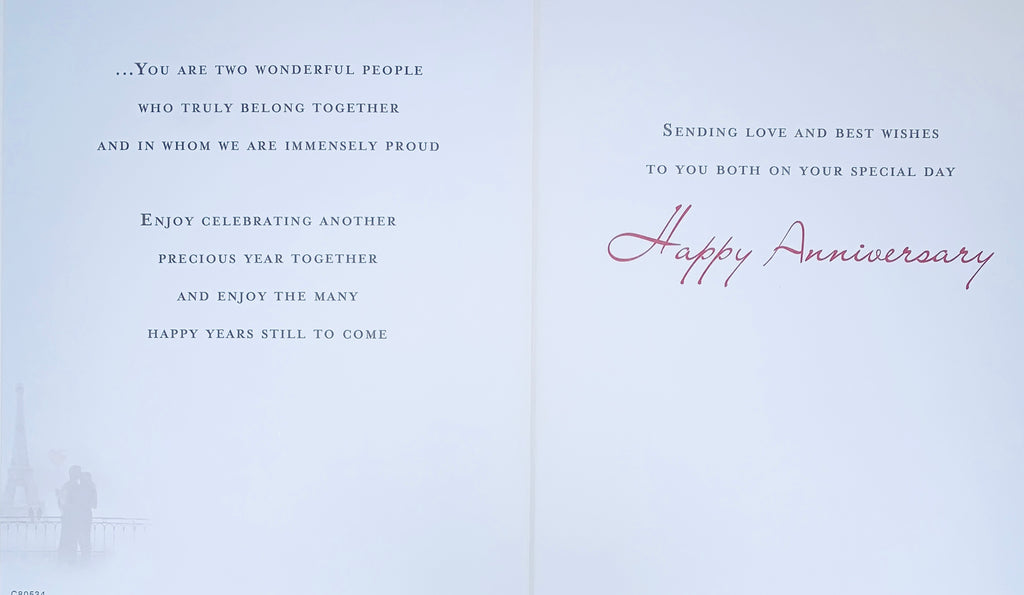 ...You are two wonderful people
who truly belong together
and in whom we are immensely proud
Enjoy celebrating another
precious year together
and enjoy the many
happy years still to come
Sending love and best wishes
to you both on your special day
Happy Anniversary